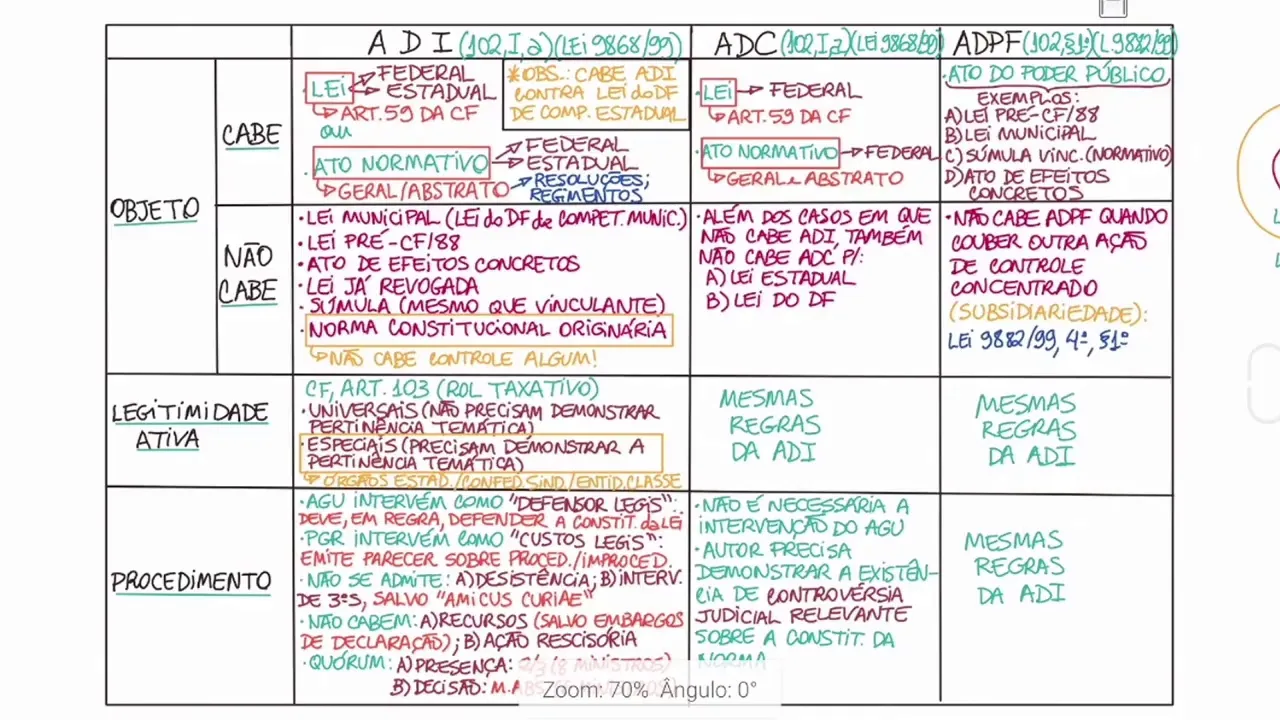 ADI (102,I,a)(LEI 9868/99)
ADC (102,I,a)(LEI 9868/99)
ADPF (102,§1º)(L.9882/99)
OBJETO
CABE
· LEI → FEDERAL
→ ESTADUAL
↳ ART. 59 DA CF
OU
· ATO NORMATIVO → FEDERAL
→ ESTADUAL
↳ GERAL/ABSTRATO → RESOLUÇÕES;
REGIMENTOS
*OBS.: CABE ADI
CONTRA LEI do DF
DE COMP. ESTADUAL
· LEI → FEDERAL
↳ ART. 59 DA CF
· ATO NORMATIVO → FEDERAL
↳ GERAL e ABSTRATO
· ATO DO PODER PÚBLICO
EXEMPLOS:
A) LEI PRÉ-CF/88
B) LEI MUNICIPAL
C) SÚMULA VINC. (NORMATIVO)
D) ATO DE EFEITOS
CONCRETOS
NÃO
CABE
· LEI MUNICIPAL (LEI do DF de COMPET. MUNIC.)
· LEI PRÉ-CF/88
· ATO DE EFEITOS CONCRETOS
· LEI JÁ REVOGADA
· SÚMULA (MESMO QUE VINCULANTE)
· NORMA CONSTITUCIONAL ORIGINÁRIA
↳ NÃO CABE CONTROLE ALGUM!
· ALÉM DOS CASOS EM QUE
NÃO CABE ADI, TAMBÉM
NÃO CABE ADC P/:
A) LEI ESTADUAL
B) LEI DO DF
· NÃO CABE ADPF QUANDO
COUBER OUTRA AÇÃO
DE CONTROLE
CONCENTRADO
(SUBSIDIARIEDADE):
LEI 9882/99, 4º, §1º
LEGITIMIDADE
ATIVA
CF, ART. 103 (ROL TAXATIVO)
· UNIVERSAIS (NÃO PRECISAM DEMONSTRAR
PERTINÊNCIA TEMÁTICA)
· ESPECIAIS (PRECISAM DEMONSTRAR A
PERTINÊNCIA TEMÁTICA)
↳ ÓRGÃOS ESTAD./CONFED. SIND./ENTID. CLASSE
MESMAS
REGRAS
DA ADI
MESMAS
REGRAS
DA ADI
PROCEDIMENTO
· AGU INTERVÉM COMO "DEFENSOR LEGIS":
DEVE, EM REGRA, DEFENDER A CONSTIT. da LEI
· PGR INTERVÉM COMO "CUSTOS LEGIS":
EMITE PARECER SOBRE PROCED./IMPROCED.
· NÃO SE ADMITE: A) DESISTÊNCIA; B) INTERV.
DE 3ºS, SALVO "AMICUS CURIAE"
· NÃO CABEM: A) RECURSOS (SALVO EMBARGOS
DE DECLARAÇÃO); B) AÇÃO RESCISÓRIA
· QUÓRUM: A) PRESENÇA: 2/3 (8 MINISTROS)
B) DECISÃO: M. ABS
· NÃO É NECESSÁRIA A
INTERVENÇÃO DO AGU
· AUTOR PRECISA
DEMONSTRAR A EXISTÊN-
CIA DE CONTROVÉRSIA
JUDICIAL RELEVANTE
SOBRE A CONSTIT. DA
NORMA
MESMAS
REGRAS
DA ADI
Zoom: 70% Ângulo: 0°